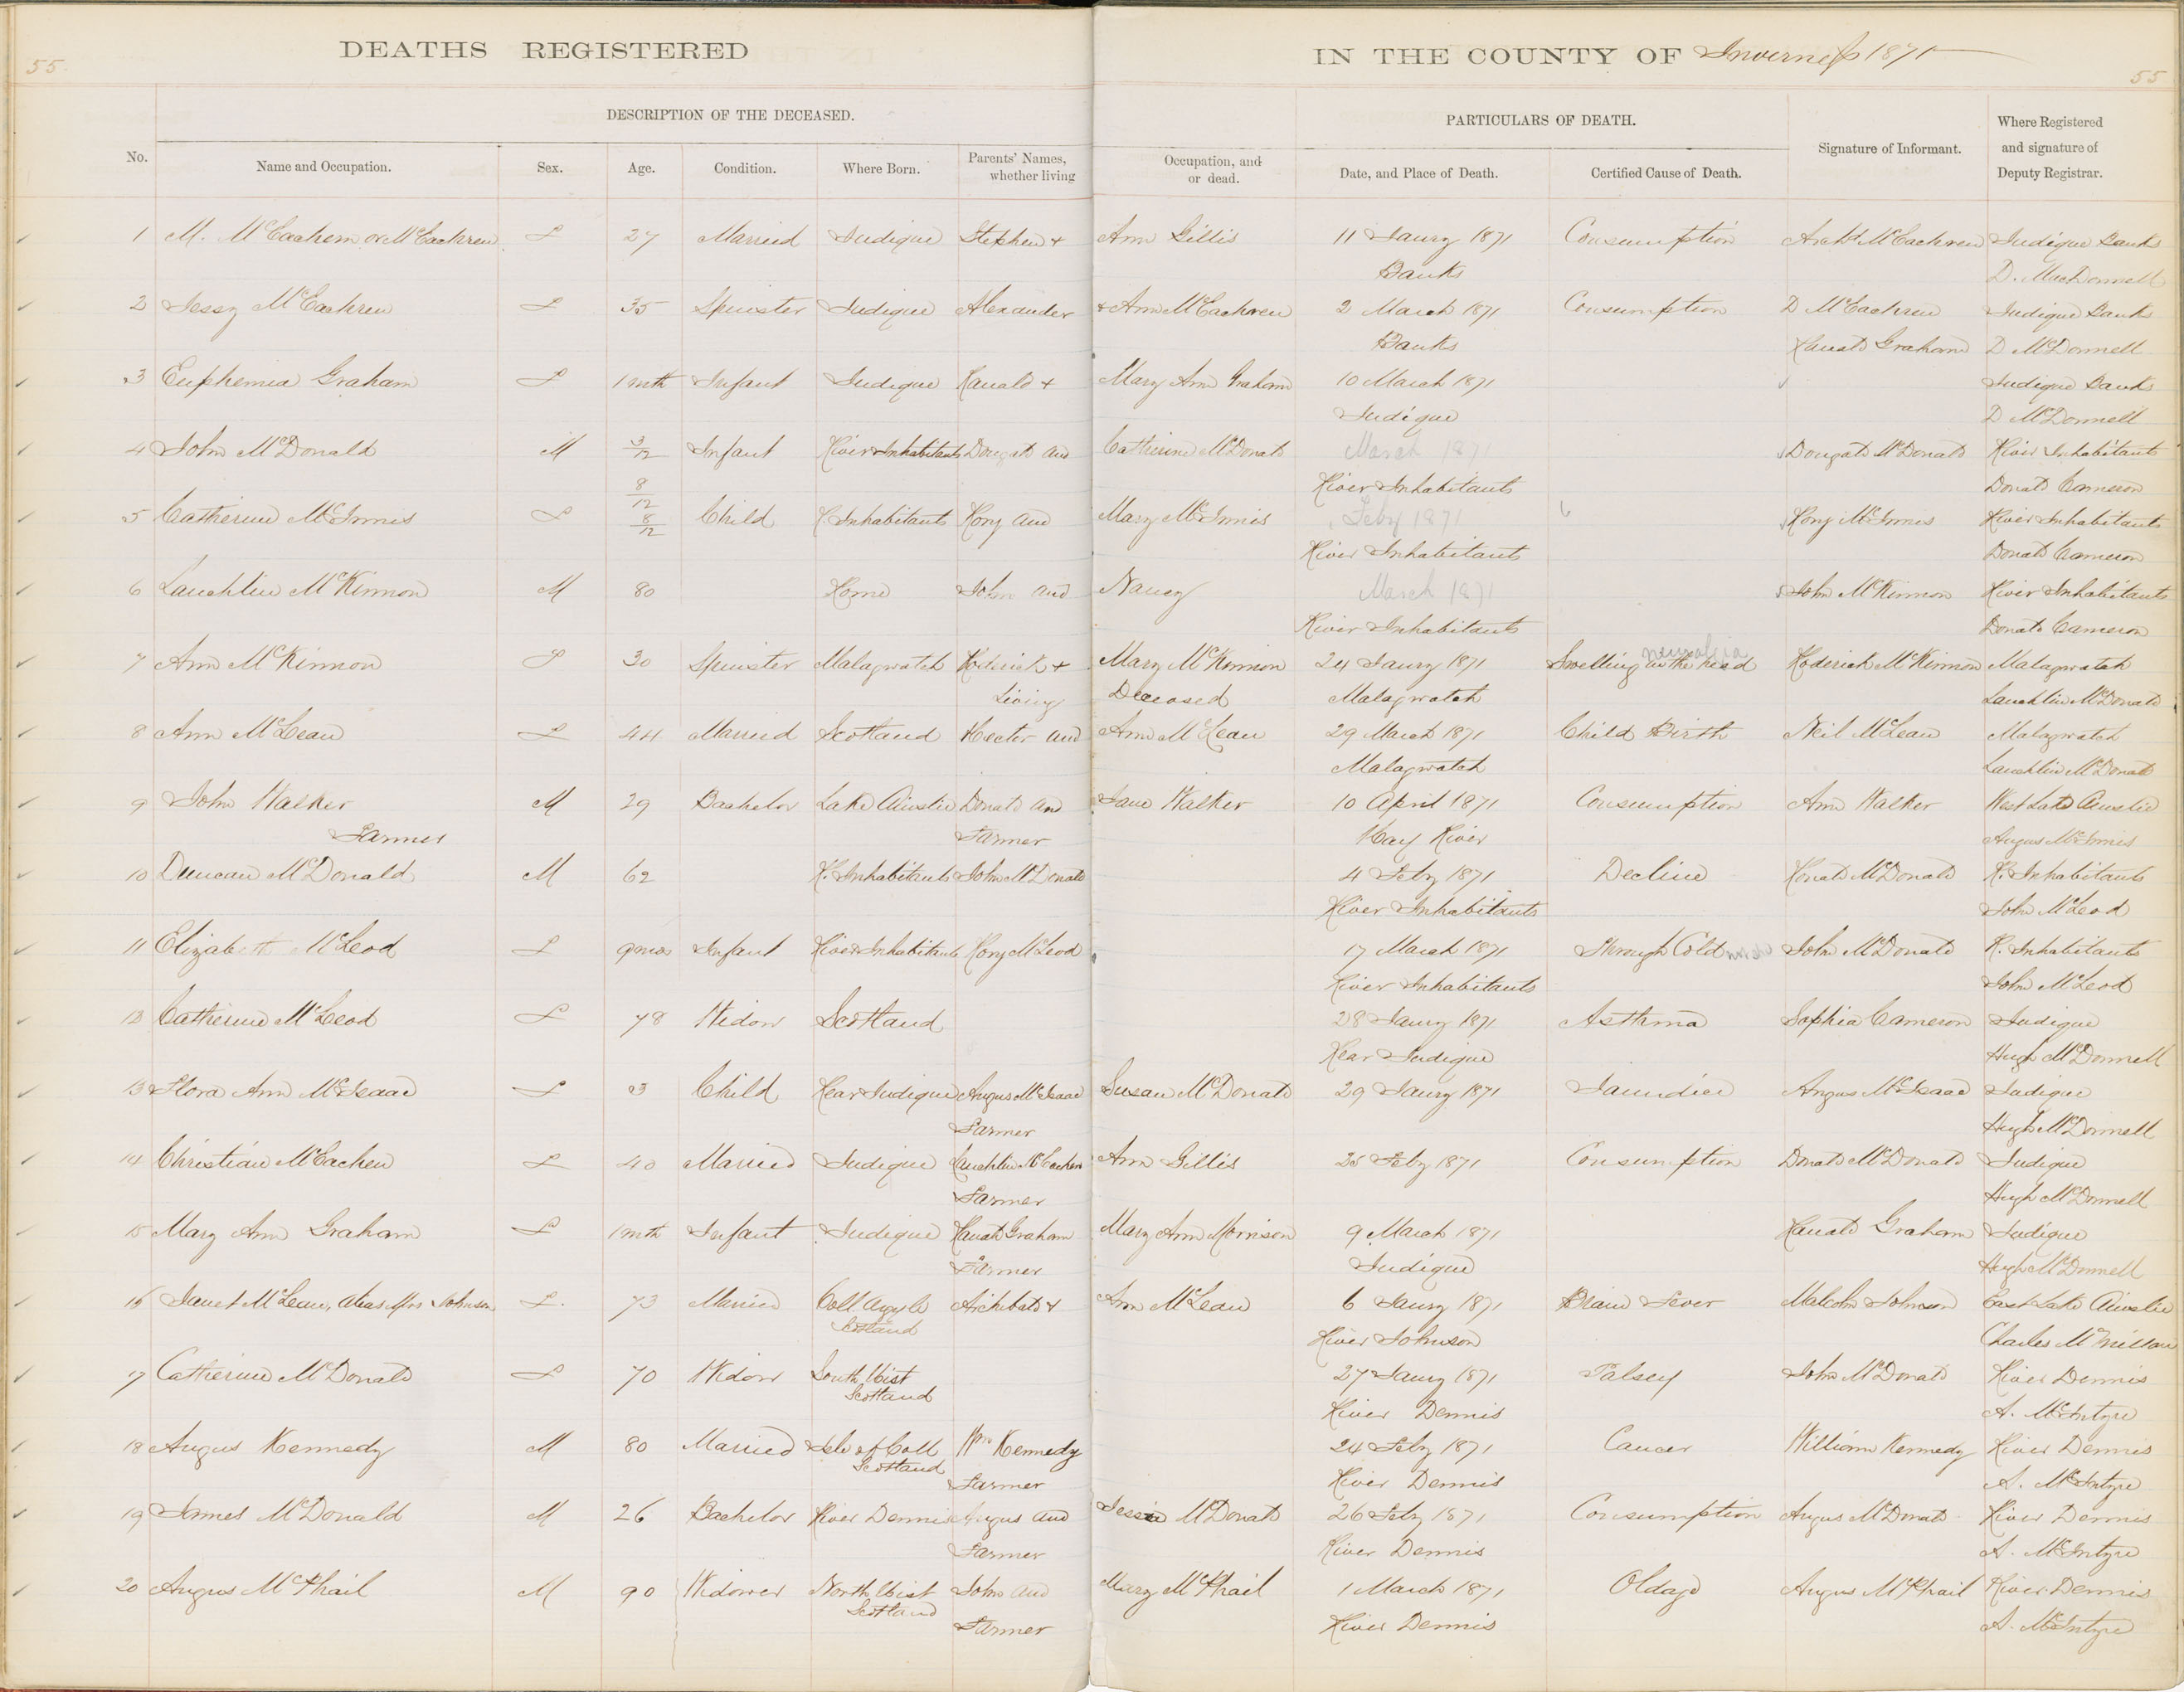 55
DEATHS REGISTERED
IN THE COUNTY OF Inverness 1871
55
DESCRIPTION OF THE DECEASED.
PARTICULARS OF DEATH.
Where Registered and signature of Deputy Registrar.
No.
Name and Occupation.
Sex.
Age.
Condition.
Where Born.
Parents' Names, whether living
Occupation, and or dead.
Date, and Place of Death.
Certified Cause of Death.
Signature of Informant.
1 M. McEachern or McEachren F 27 Married Judique Stephen + Ann Gillis 11 Jaury 1871 Consumption Archd McEachren Judique Banks
Banks D. MacDonnell
2 Jessy McEachren F 35 Spinster Judique Alexander + Ann McEachren 2 March 1871 Consumption D McEachren Judique Banks
Banks Ranald Graham D McDonnell
3 Euphemia Graham F 1 mth Infant Judique Ranald + Mary Ann Graham 10 March 1871 Judique Banks
Judique D McDonnell
4 John McDonald M 3/12 Infant River Inhabitants Dougald and Catherine McDonald March 1871 Dougald McDonald River Inhabitants
8/12 River Inhabitants Donald Cameron
5 Catherine McInnis F 8/12 Child R. Inhabitants Rory and Mary McInnis Feby 1871 Rory McInnis River Inhabitants
River Inhabitants Donald Cameron
6 Lauchlin McKinnon M 80 Home John and Nancy March 1871 John McKinnon River Inhabitants
River Inhabitants Donald Cameron
7 Ann McKinnon F 30 Spinster Malagwatch Roderick + Mary McKinnon 24 Jaury 1871 Swelling in the head neuralgia Roderick McKinnon Malagwatch
Living Deceased Malagwatch Lauchlin McDonald
8 Ann McLean F 44 Married Scotland Hector and Ann McLean 29 March 1871 Child Birth Neil McLean Malagwatch
Malagwatch Lauchlin McDonald
9 John Walker M 29 Bachelor Lake Ainslie Donald and Jane Walker 10 April 1871 Consumption Ann Walker West Lake Ainslie
Farmer Farmer Hay River Angus McInnis
10 Duncan McDonald M 62 R. Inhabitants John McDonald 4 Feby 1871 Decline Ronald McDonald R. Inhabitants
River Inhabitants John McLeod
11 Elizabeth McLeod F 9 mos Infant River Inhabitants Rory McLeod 17 March 1871 Through Cold John McDonald R. Inhabitants
River Inhabitants John McLeod
12 Catherine McLeod F 78 Widow Scotland 28 Jaury 1871 Asthma Sophia Cameron Judique
Rear Judique Hugh McDonnell
13 Flora Ann McIsaac F 3 Child Rear Judique Angus McIsaac Susan McDonald 29 Jaury 1871 Jaundice Angus McIsaac Judique
Farmer Hugh McDonnell
14 Christian McEachen F 40 Married Judique Lauchlin McEachen Ann Gillis 25 Feby 1871 Consumption Donald McDonald Judique
Farmer Hugh McDonnell
15 Mary Ann Graham F 1 mth Infant Judique Ranald Graham Mary Ann Morrison 9 March 1871 Ranald Graham Judique
Farmer Judique Hugh McDonnell
16 Janet McLean, alias Mrs Johnson F. 73 Married Coll Argyle Archibald + Ann McLean 6 Jaury 1871 Brain Fever Malcolm Johnson East Lake Ainslie
Scotland River Johnson Charles McMillan
17 Catherine McDonald F 70 Widow South Uist 27 Jaury 1871 Palsey John McDonald River Dennis
Scotland River Dennis A. McIntyre
18 Angus Kennedy M 80 Married Isle of Coll Wm Kennedy 24 Feby 1871 Cancer William Kennedy River Dennis
Scotland Farmer River Dennis A. McIntyre
19 James McDonald M 26 Bachelor River Dennis Angus and Jessie McDonald 26 Feby 1871 Consumption Angus McDonald River Dennis
Farmer River Dennis A. McIntyre
20 Angus McPhail M 90 Widower North Uist John and Mary McPhail 1 March 1871 Oldage Angus McPhail River Dennis
Scotland Farmer River Dennis A. McIntyre